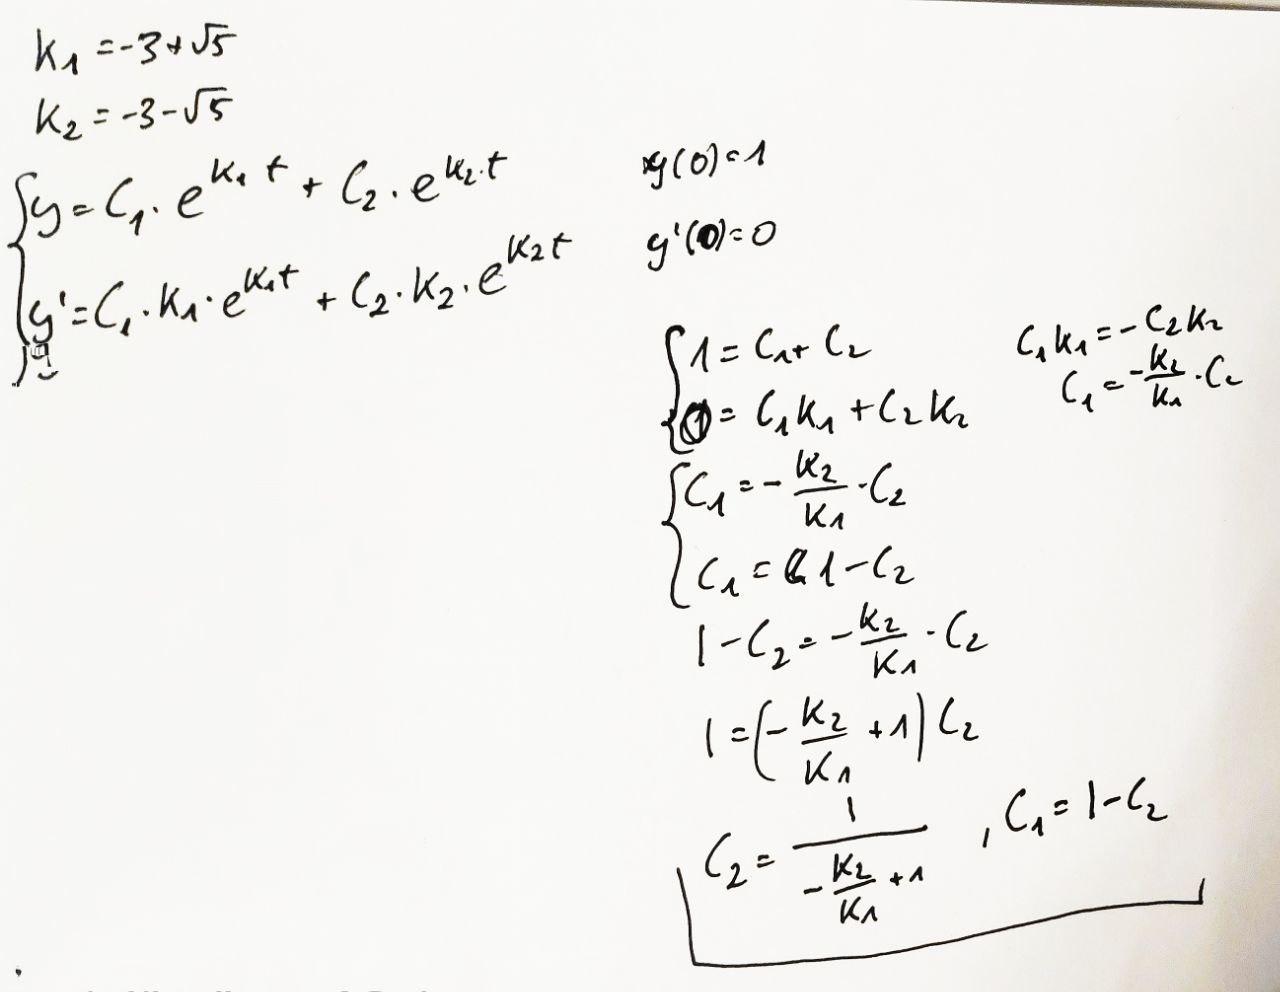 k₁ = -3+√5
k₂ = -3-√5
y = C₁·e^{k₁t} + C₂·e^{k₂·t}
y' = C₁·k₁·e^{k₁t} + C₂·k₂·e^{k₂t}
y(0)=1
y'(0)=0
1 = C₁+C₂
0 = C₁k₁+C₂k₂
C₁k₁=-C₂k₂
C₁=-k₂/k₁·C₂
C₁=-k₂/k₁·C₂
C₁=1-C₂
1-C₂=-k₂/k₁·C₂
1=(-k₂/k₁+1)C₂
C₂=1/(-k₂/k₁+1), C₁=1-C₂